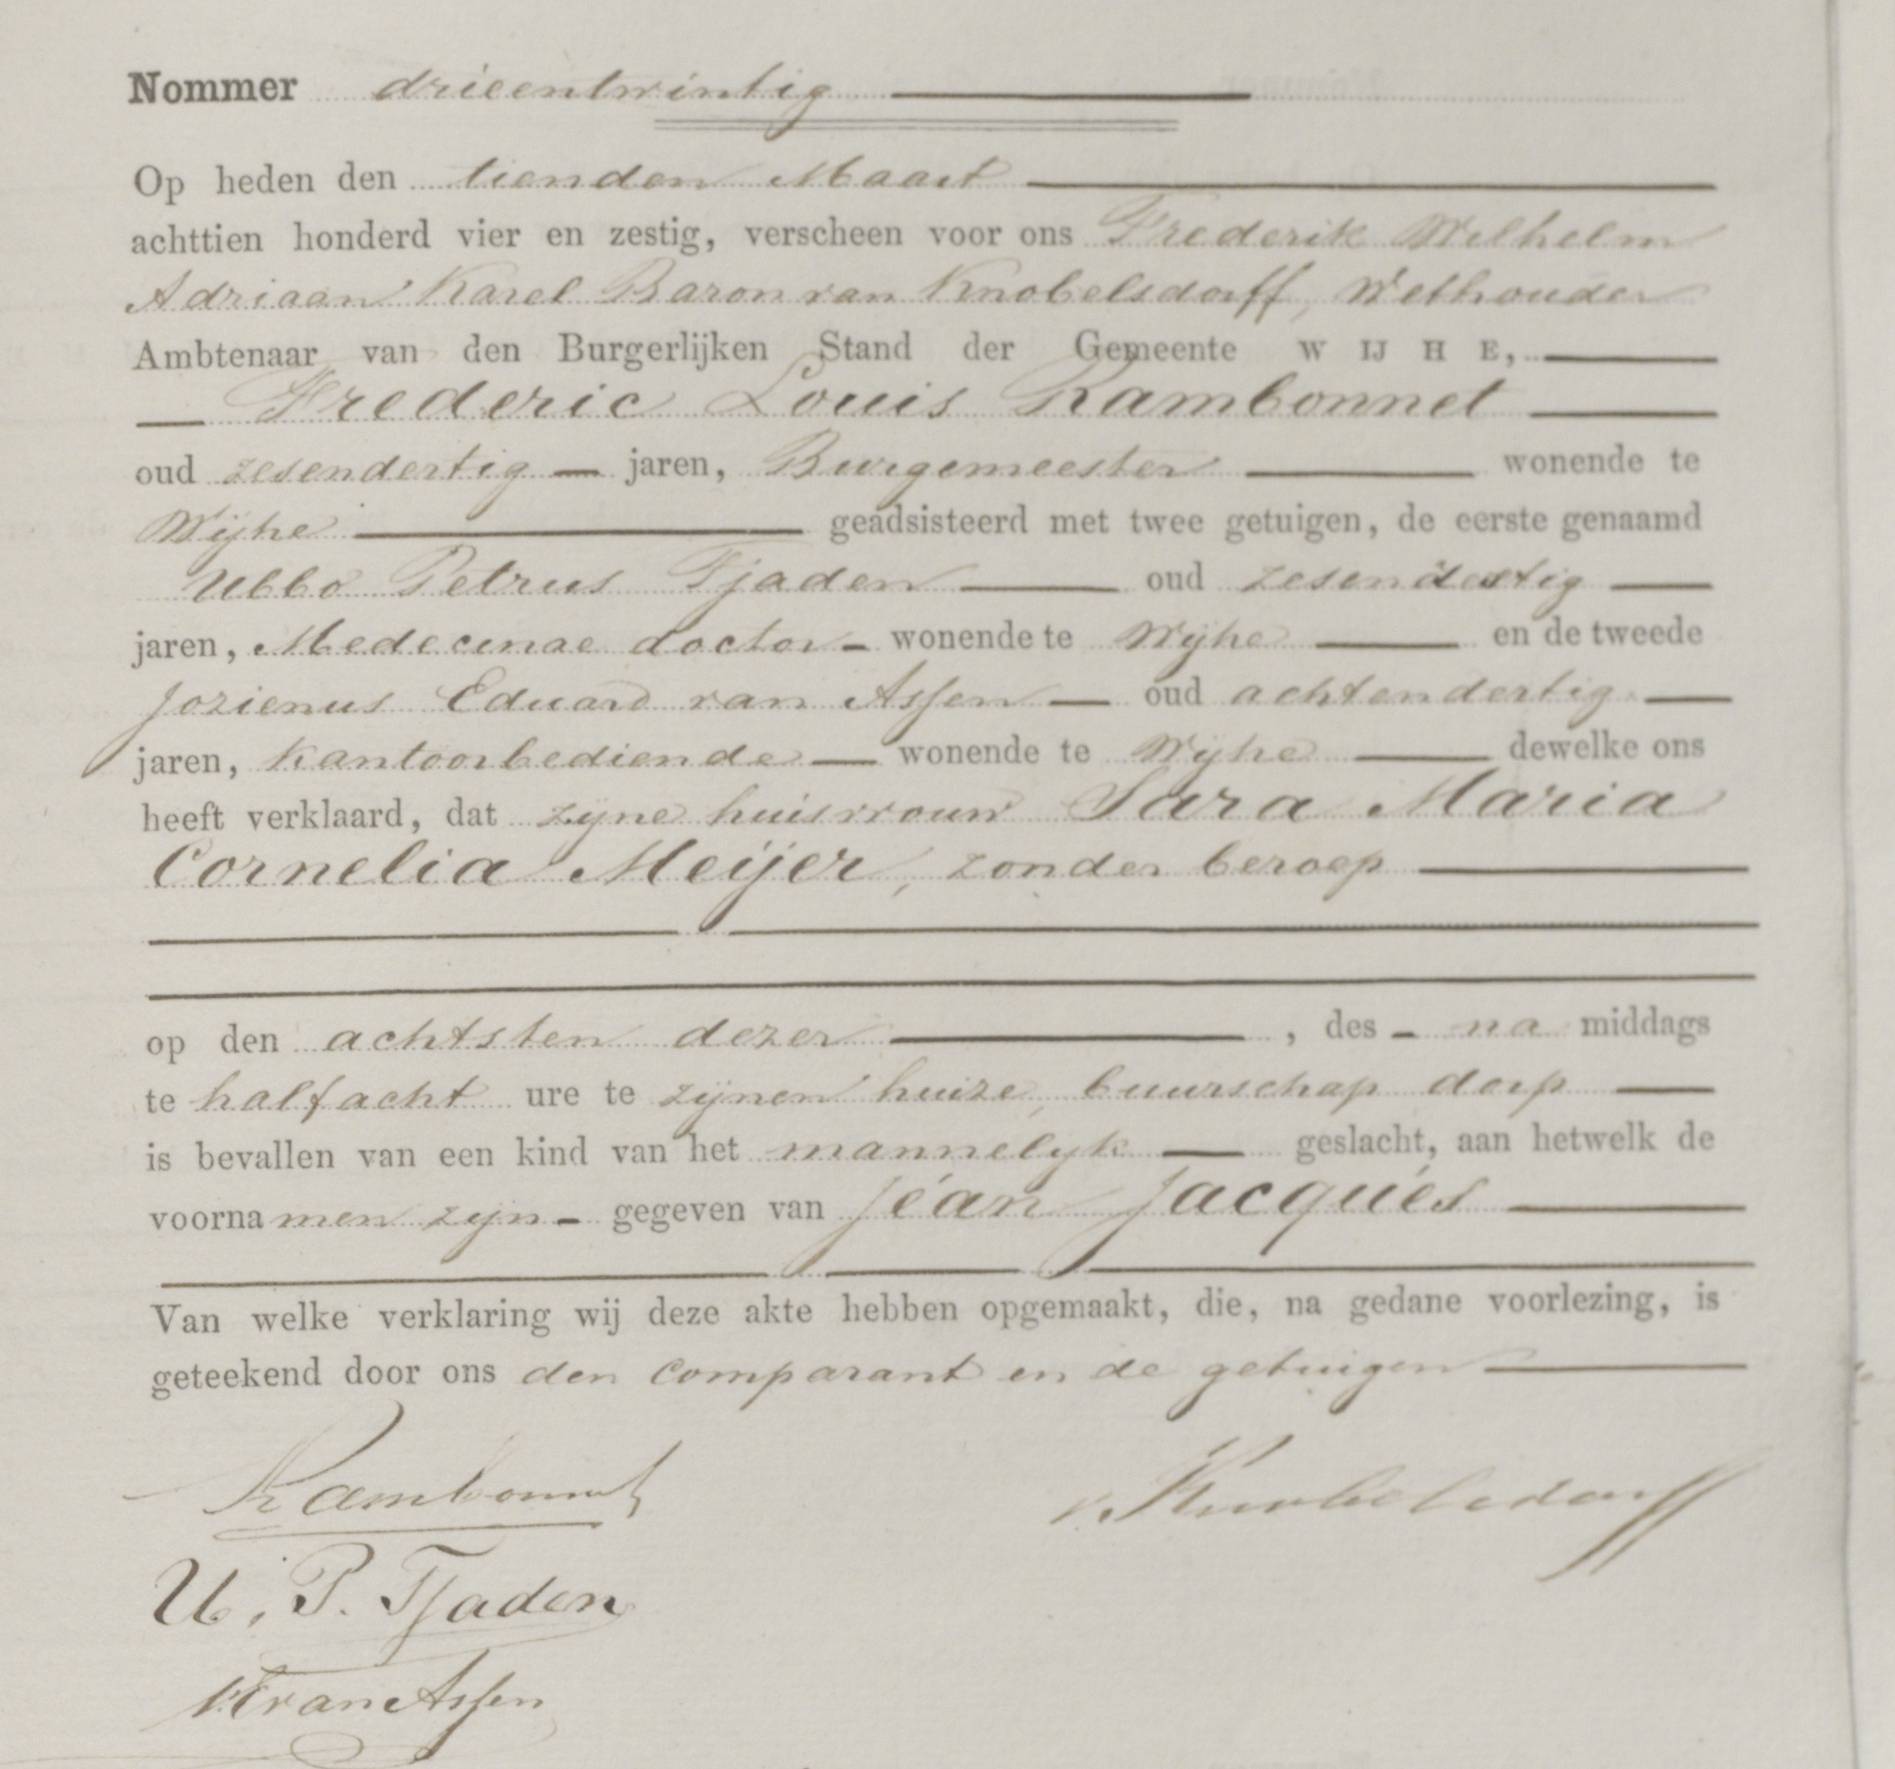 Nommer drieentwintig
Op heden den tienden Maart
achttien honderd vier en zestig, verscheen voor ons Frederik Wilhelm
Adriaan Karel Baron van Knobelsdorff, Wethouder
Ambtenaar van den Burgerlijken Stand der Gemeente WIJHE,
Frederic Louis Rambonnet
oud zesendertig jaren, Burgemeester wonende te
Wijhe geadsisteerd met twee getuigen, de eerste genaamd
Ubbo Petrus Tjaden oud zesendertig
jaren, Medecinae doctor wonende te Wijhe en de tweede
Jozienus Eduard van Assen oud achtendertig
jaren, kantoorbediende wonende te Wijhe dewelke ons
heeft verklaard, dat zijne huisvrouw Sara Maria
Cornelia Meijer, zonder beroep
op den achtsten dezer, des na middags
te half acht ure te zijnen huize, buurschap dorp
is bevallen van een kind van het mannelijk geslacht, aan hetwelk de
voornamen zijn gegeven van Jéan Jacqués
Van welke verklaring wij deze akte hebben opgemaakt, die, na gedane voorlezing, is
geteekend door ons den comparant en de getuigen
Rambonnet
v. Knobelsdorff
U. P. Tjaden
van Assen